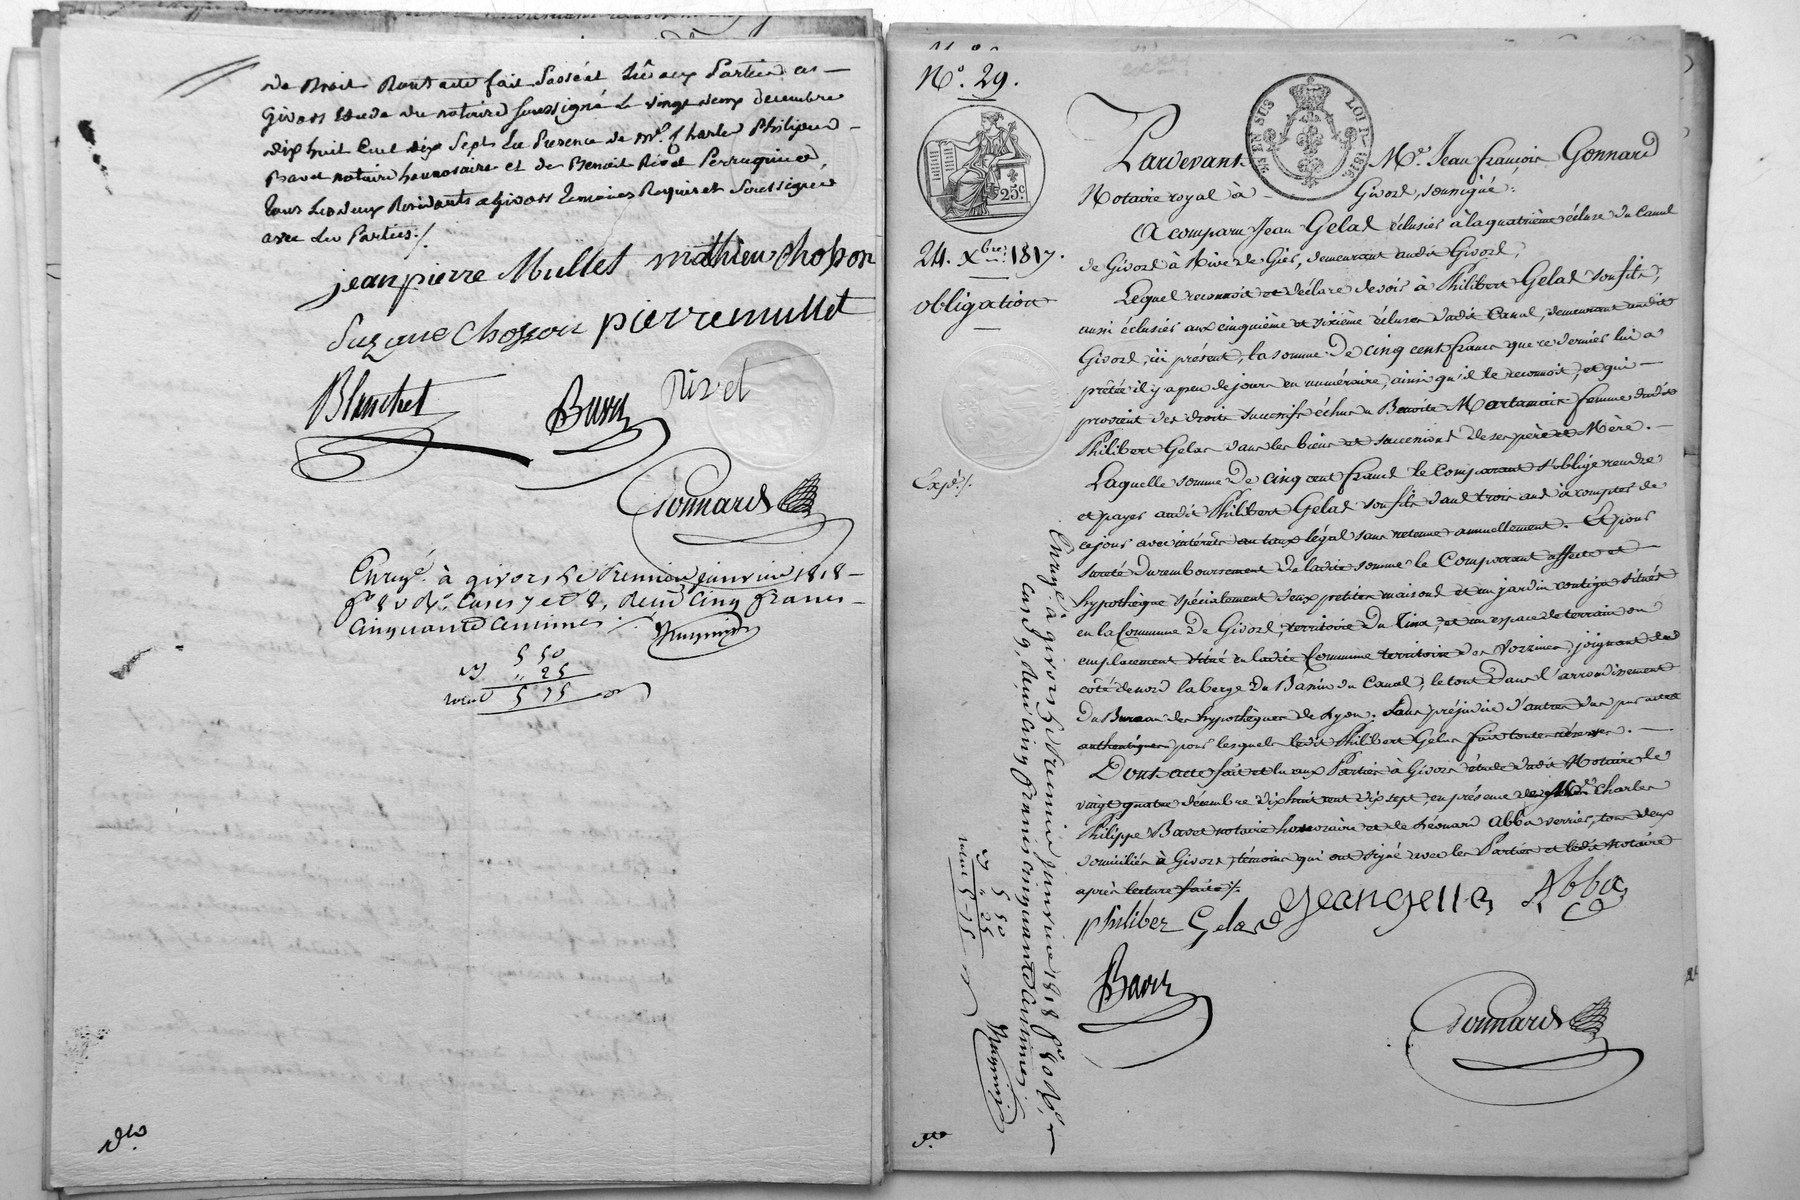 de Droit. Dont acte fait Passé et Lu aux Parties a
Givors Etude du notaire Soussigné Le vingt deux decembre
dix huit Cent dix Sept En Présence de Mr. Charles Philippe
Bavet notaire honnoraire et de Benoit Rivet Perruquier,
tous Les deux Residants a Givors temoins Requis et Soussignés
avec Les Parties./.
jean pierre Mullet mathieu chosson
Suzane Chosson pierre mullet
Blanchet Bavet Rivet
Gonnard
Enrgé. à givors, Le Premier janvier 1818
fo. 80 Ro. Cases 7 et 8, reçu Cinq francs
Cinquante centimes
5 50
„ 25
5 75
No. 29.
25 EN SUS LOI DE 1816.
25 c.
24. Xbre. 1817.
obligation
Expé./.
Pardevant Me. Jean François Gonnard
Notaire royal à Givors, soussigné:
A comparu Jean Gelas éclusier à la quatrième écluse du Canal
de Givors à Rive de Gier, demeurant audit Givors;
Lequel reconnoit et déclare devoir à Philibert Gelas son fils,
aussi éclusier aux cinquième et sixième écluses dudit Canal, demeurant audit
Givors, ici présent, la somme de cinq cents francs que ce dernier lui a
prêtée il y a peu de jours en numéraire, ainsi qu'il le reconnoit, et qui
provient des droits successifs échus à Benoite Martamaire femme dudit
Philibert Gelas dans les biens et successions de ses père et Mère.
Laquelle somme de cinq cents francs le comparant s'oblige rendre
et payer audit Philibert Gelas son fils dans trois ans à compter de
ce jour avec intérêts au taux légal sans retenue annuellement. Et pour
sureté du remboursement de ladite somme le Comparant affecte et
hypothèque spécialement deux petites maisons et un jardin contigu situés
en la Commune de Givors, territoire du et un espace de terrain ou
emplacement situé en ladite Commune territoire des Vorzines, joignant du
côté de nord la berge du Bassin du Canal, le tout dans l'arrondissement
du Bureau des hypothèques de Lyon. Sans préjudice d'autres dus par actes
authentiques pour lesquels ledit Philibert Gelas fait toutes réserves.
Dont acte fait et lu aux Parties à Givors étude dudit Notaire le
vingt quatre décembre dix huit cent dix sept, en présence de Charles
Philippe Bavet notaire honoraire et de Léonard Abba verrier, tous deux
domiciliés à Givors, témoins qui ont signé avec les Parties et ledit Notaire
après lecture faite./.
philiber Gelas jean gella Abba
Bavet
Gonnard
Enrgé. à givors, Le Premier janvier 1818 fo. 80 Ro.
Case 9, reçu Cinq francs cinquante centimes
5 50
„ 25
5 75